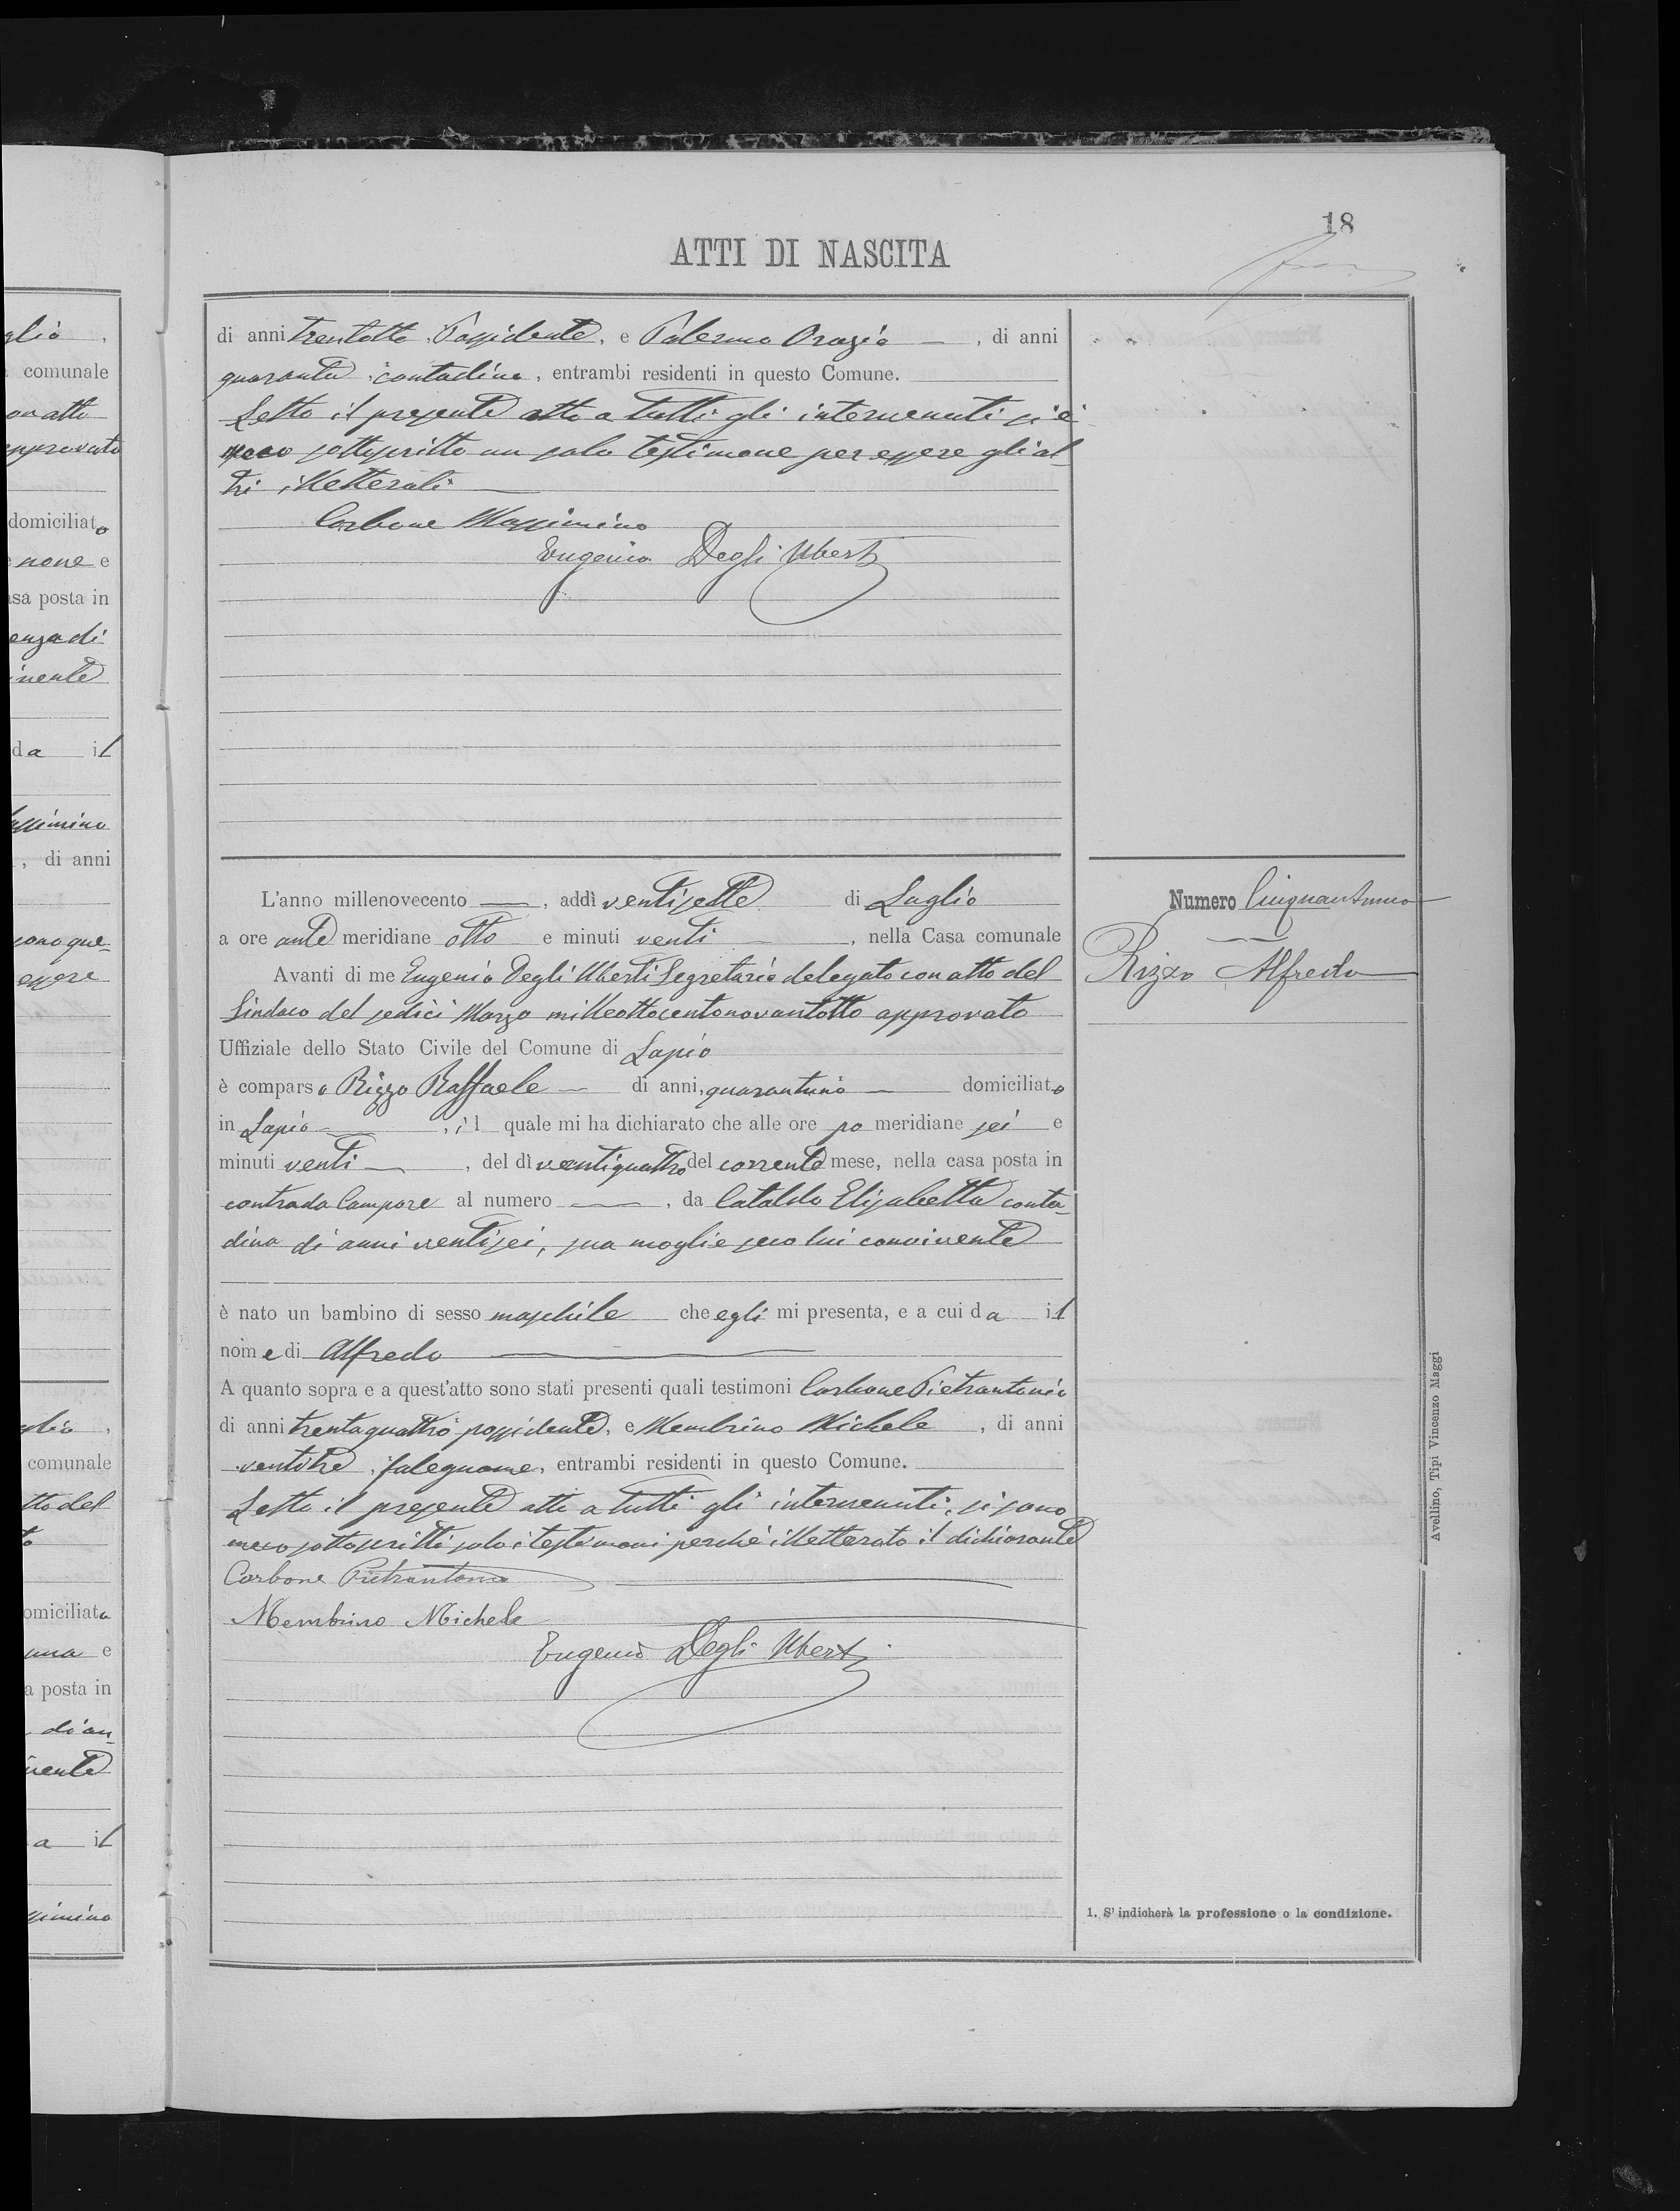 18
ATTI DI NASCITA
di anni trentotto, Possidente, e Palermo Orazio — , di anni
quaranta, contadino, entrambi residenti in questo Comune.
Letto il presente atto a tutti gli intervenuti si è
meco sottoscritto un solo testimone per essere gli al-
tri illetterati
Carbone Massimino
Eugenio Degli Uberti
Numero Cinquantuno
Rizzo Alfredo
L'anno millenovecento — , addì ventisette di Luglio
a ore ante meridiane otto e minuti venti — , nella Casa comunale
Avanti di me Eugenio Degli Uberti Segretario delegato con atto del
Sindaco del sedici Marzo milleottocentonovantotto approvato
Uffiziale dello Stato Civile del Comune di Lapio
è comparso Rizzo Raffaele — di anni, quarantuno — domiciliato
in Lapio — , il quale mi ha dichiarato che alle ore po meridiane sei e
minuti venti — , del dì ventiquattro del corrente mese, nella casa posta in
contrada Campore al numero — , da Cataldo Elisabetta conta-
dina di anni ventisei, sua moglie seco lui convivente
è nato un bambino di sesso maschile che egli mi presenta, e a cui da il
nome di Alfredo —
A quanto sopra e a quest'atto sono stati presenti quali testimoni Carbone Pietrantonio
di anni trentaquattro possidente, e Membrino Michele , di anni
ventitre, falegname, entrambi residenti in questo Comune.
Letto il presente atto a tutti gli intervenuti, si sono
meco sottoscritti solo i testimoni perchè illetterato il dichiarante
Carbone Pietrantonio
Membrino Michele
Eugenio Degli Uberti
1. S'indicherà la professione o la condizione.
Avellino, Tipi Vincenzo Maggi